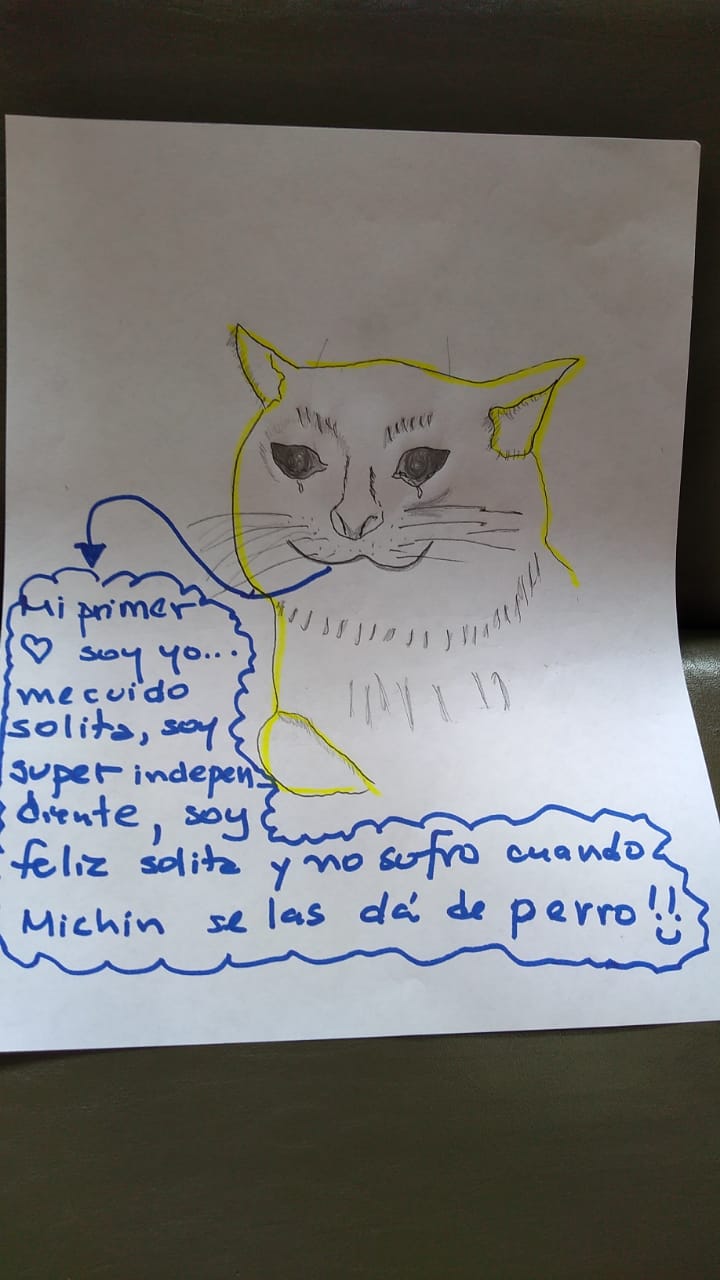 Mi primer
♡ soy yo...
me cuido
solita, soy
super indepen-
diente, soy
feliz solita y no sufro cuando
Michin se las dá de perro!!